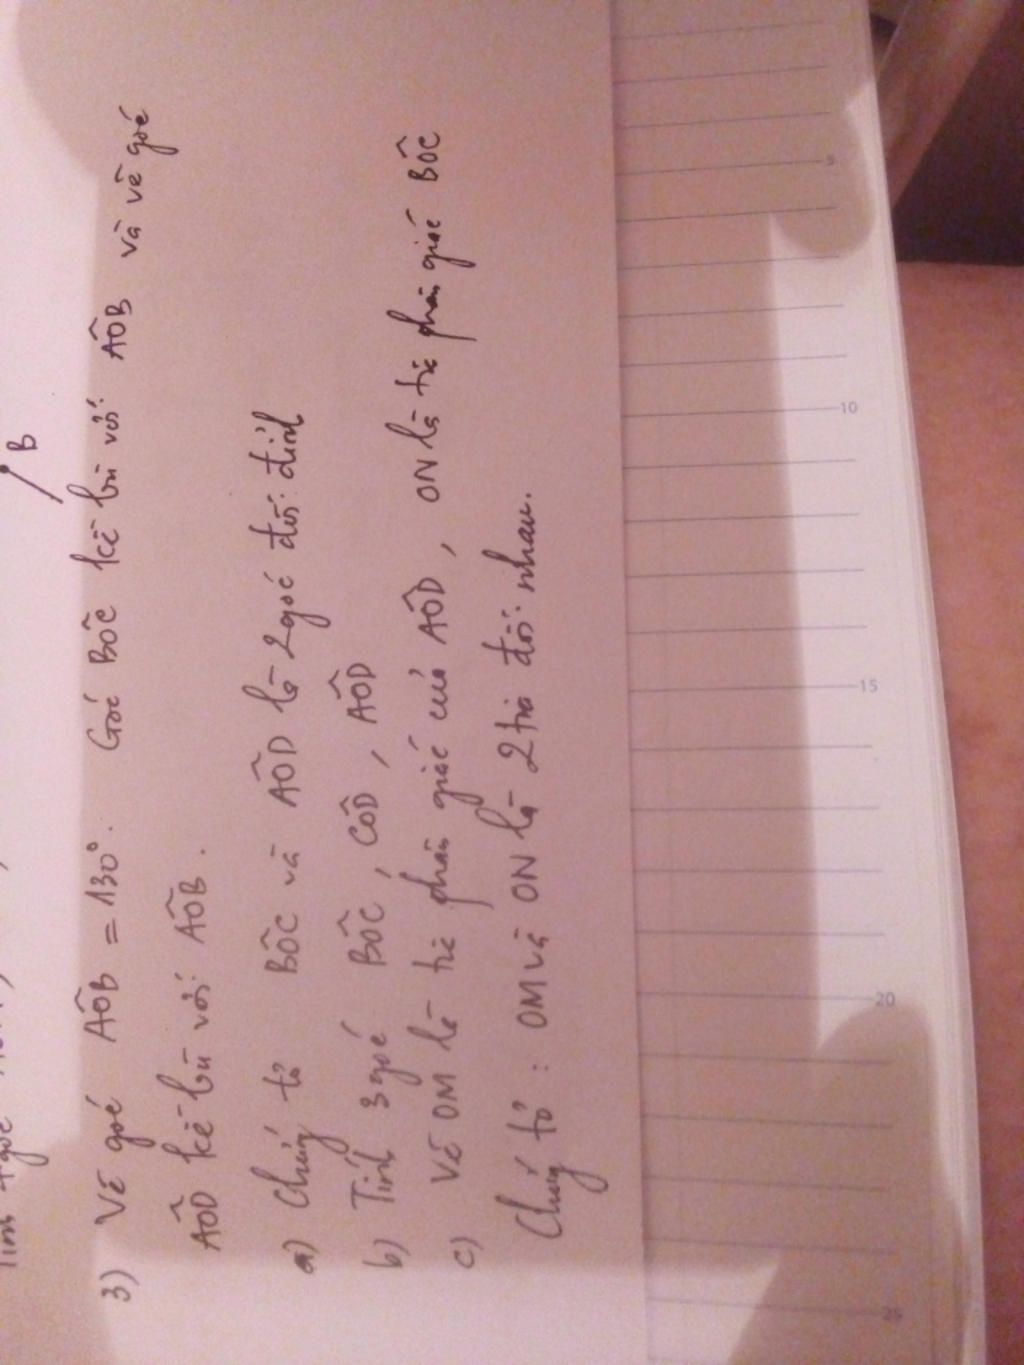 B
3) Vẽ góc AÔB = 130°. Góc BÔC kề bù với AÔB và vẽ góc
AÔD kề bù với AÔB.
a) Chứng tỏ BÔC và AÔD là 2 góc đối đỉnh
b) Tính 3 góc BÔC, CÔD, AÔD
c) Vẽ OM là tia phân giác của AÔD, ON là tia phân giác BÔC
Chứng tỏ: OM và ON là 2 tia đối nhau.
5
10
15
20
25